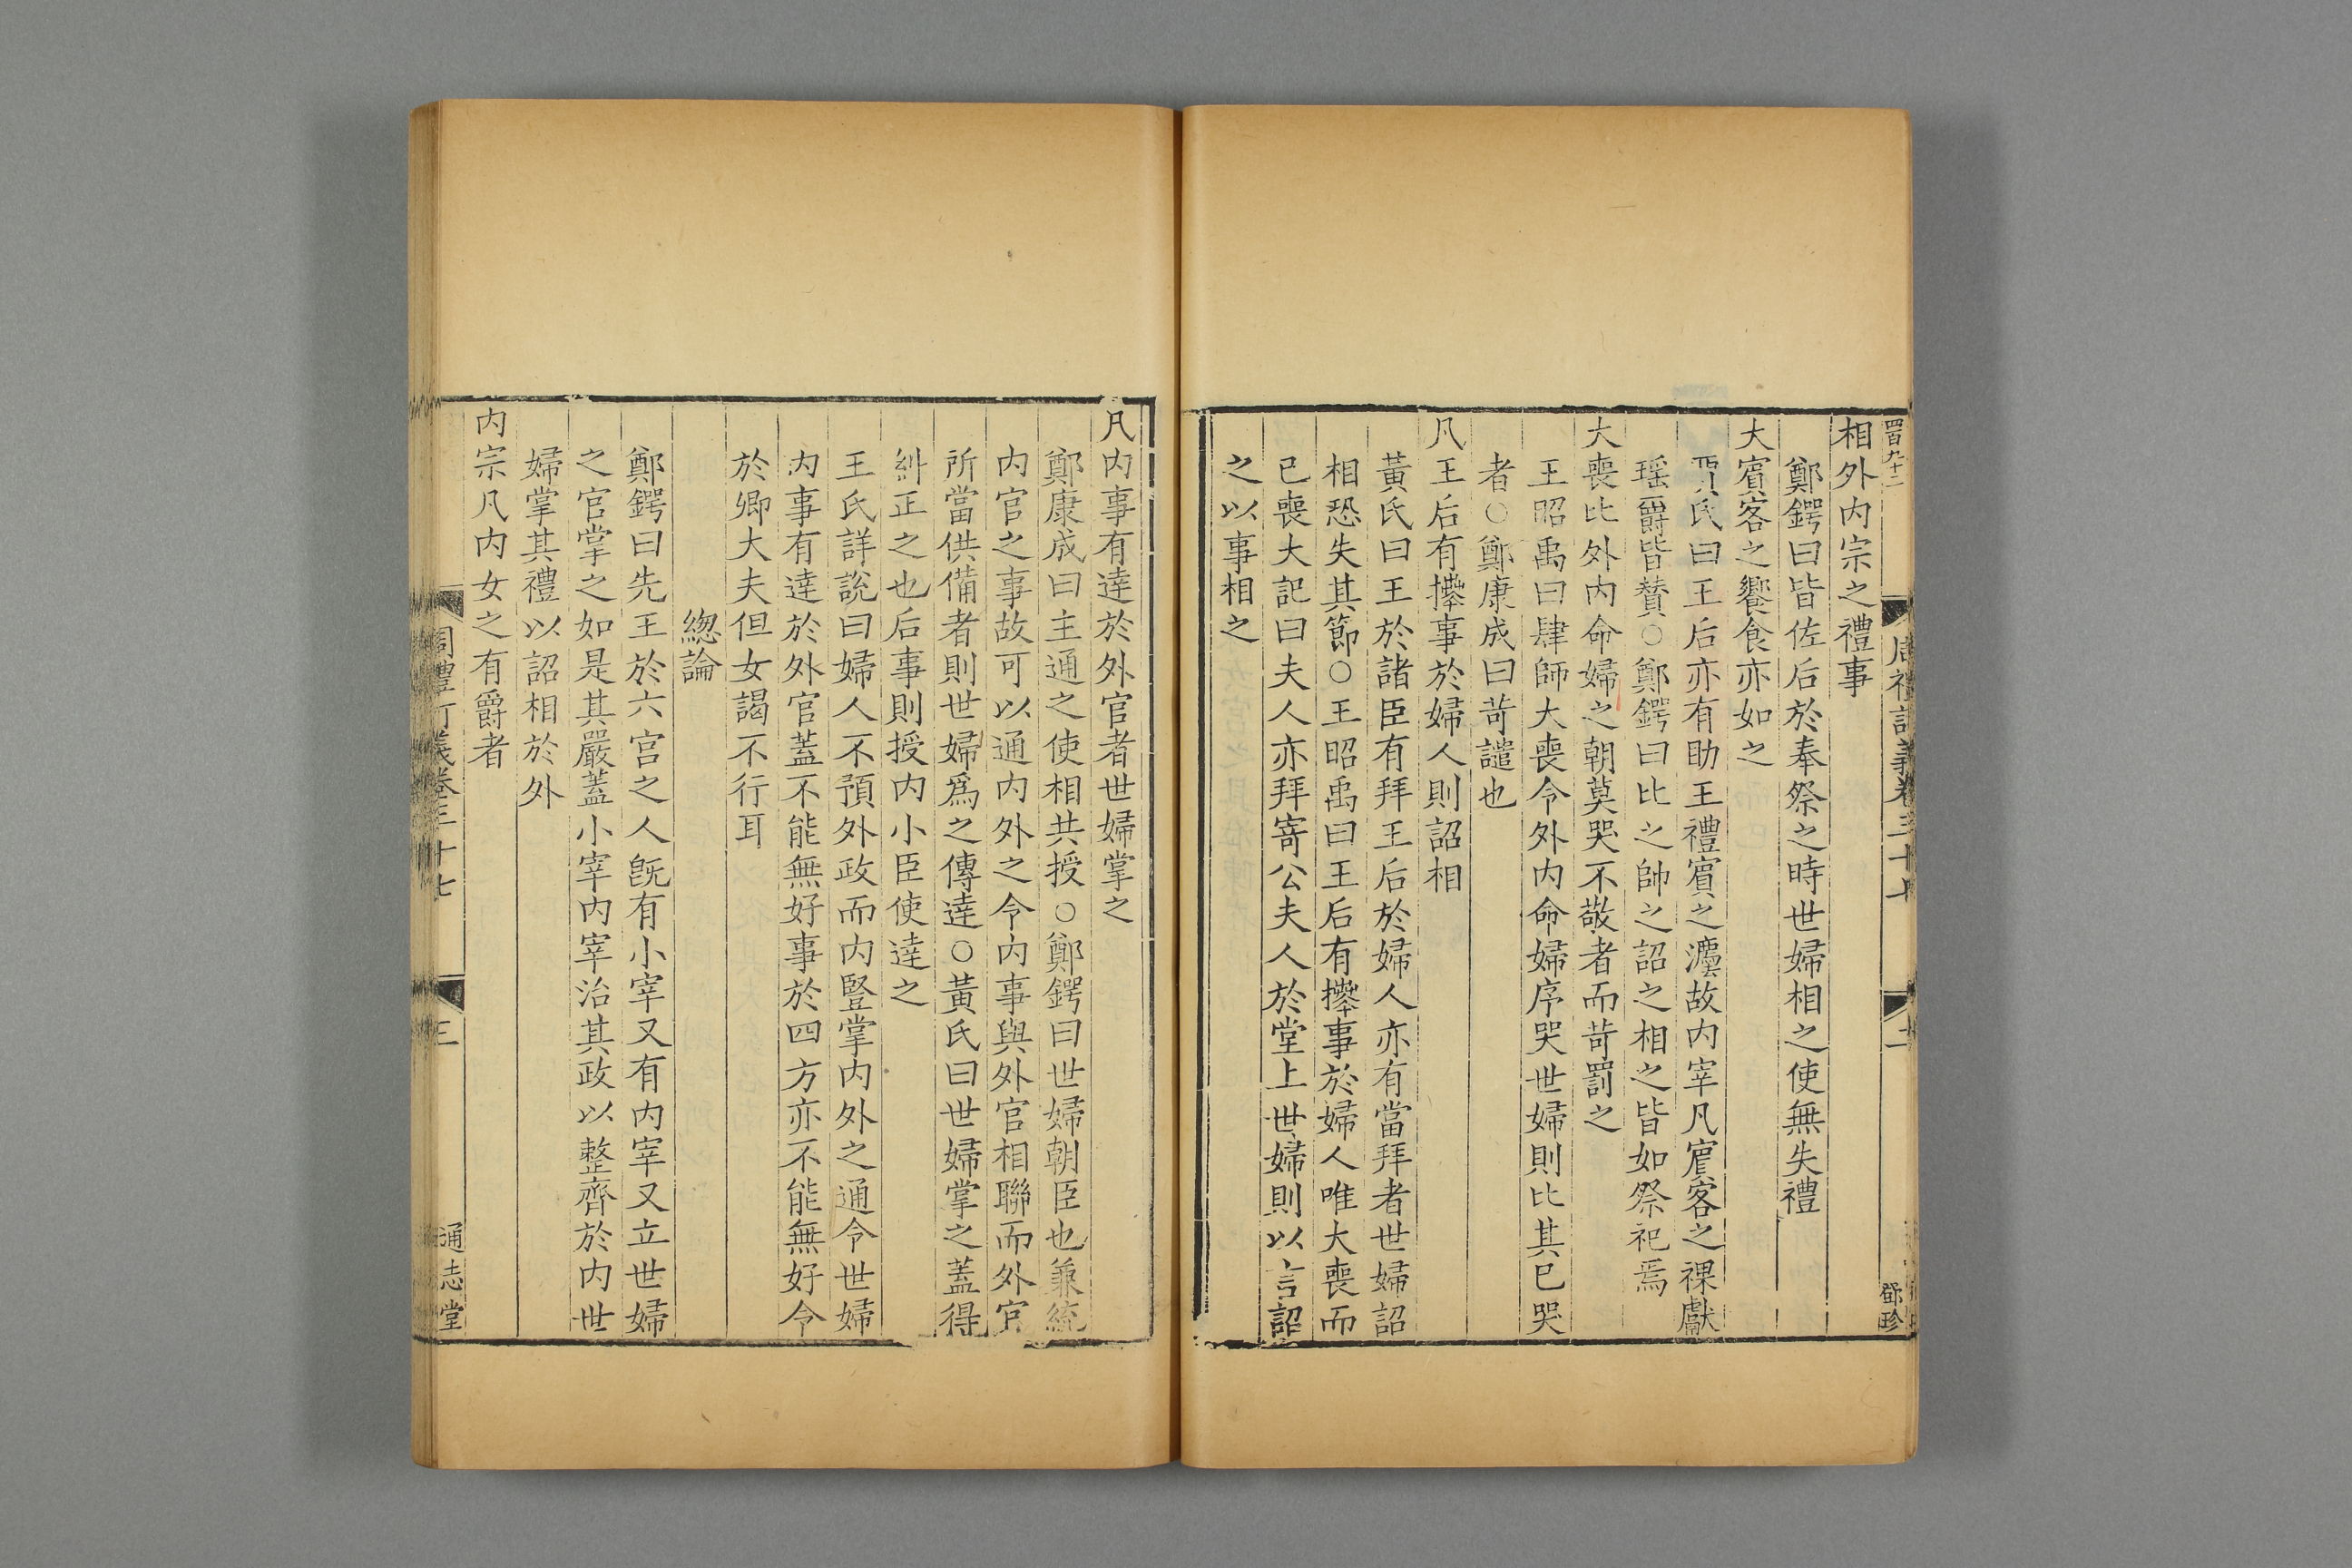 四百九十二
周禮訂義卷三十七
二
鄧珍
相外内宗之禮事
鄭鍔曰皆佐后於奉祭之時世婦相之使無失禮
大賓客之饗食亦如之
賈氏曰王后亦有助王禮賓之灋故内宰凡賓客之祼獻
瑶爵皆賛○鄭鍔曰比之帥之詔之相之皆如祭祀焉
大喪比外内命婦之朝莫哭不敬者而苛罰之
王昭禹曰肆師大喪令外内命婦序哭世婦則比其已哭
者○鄭康成曰苛譴也
凡王后有𢷎事於婦人則詔相
黃氏曰王於諸臣有拜王后於婦人亦有當拜者世婦詔
相恐失其節○王昭禹曰王后有𢷎事於婦人唯大喪而
已喪大記曰夫人亦拜寄公夫人於堂上世婦則以言詔
之以事相之
凡内事有達於外官者世婦掌之
鄭康成曰主通之使相共授○鄭鍔曰世婦朝臣也兼統
内官之事故可以通内外之令内事與外官相聯而外官
所當供備者則世婦爲之傳達○黃氏曰世婦掌之蓋得
糾正之也后事則授内小臣使達之
王氏詳說曰婦人不預外政而内豎掌内外之通令世婦
内事有達於外官蓋不能無好事於四方亦不能無好令
於卿大夫但女謁不行耳
緫論
鄭鍔曰先王於六宫之人旣有小宰又有内宰又立世婦
之官掌之如是其嚴蓋小宰内宰治其政以整齊於内世
婦掌其禮以詔相於外
内宗凡内女之有爵者
周禮訂義卷三十七
三
通志堂